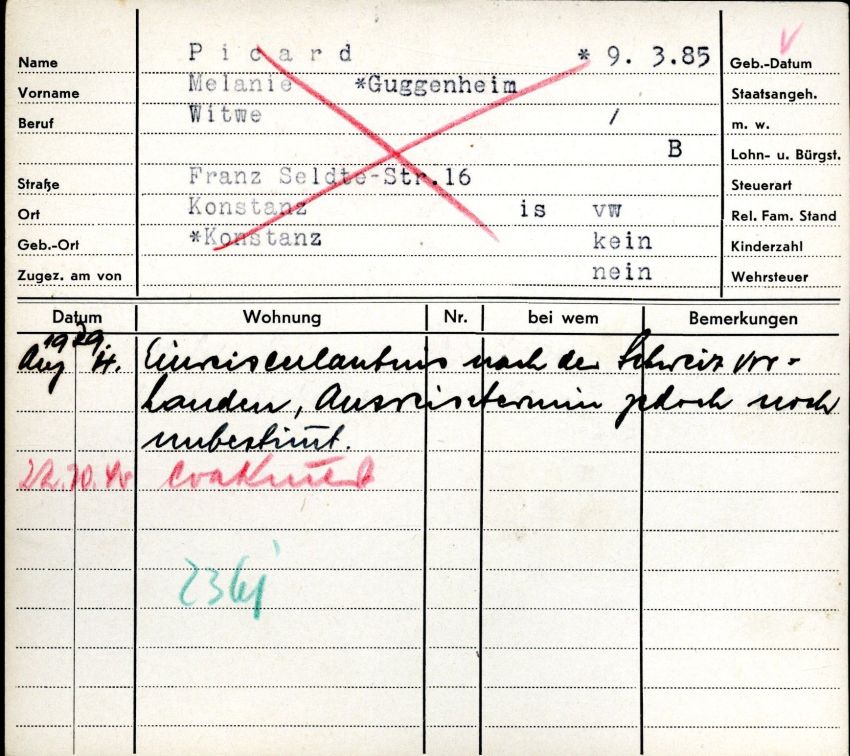 Name Picard * 9. 3.85 Geb.-Datum
Vorname Melanie *Guggenheim Staatsangeh.
Beruf Witwe / m. w.
B Lohn- u. Bürgst.
Straße Franz Seldte-Str.16 Steuerart
Ort Konstanz is vw Rel. Fam. Stand
Geb.-Ort *Konstanz kein Kinderzahl
Zugez. am von nein Wehrsteuer
Datum Wohnung Nr. bei wem Bemerkungen
1939
Aug Einreiseerlaubnis nach der Schweiz vor-
handen, Ausreisetermin jedoch noch
unbestimt.
22.10.40 evakuiert